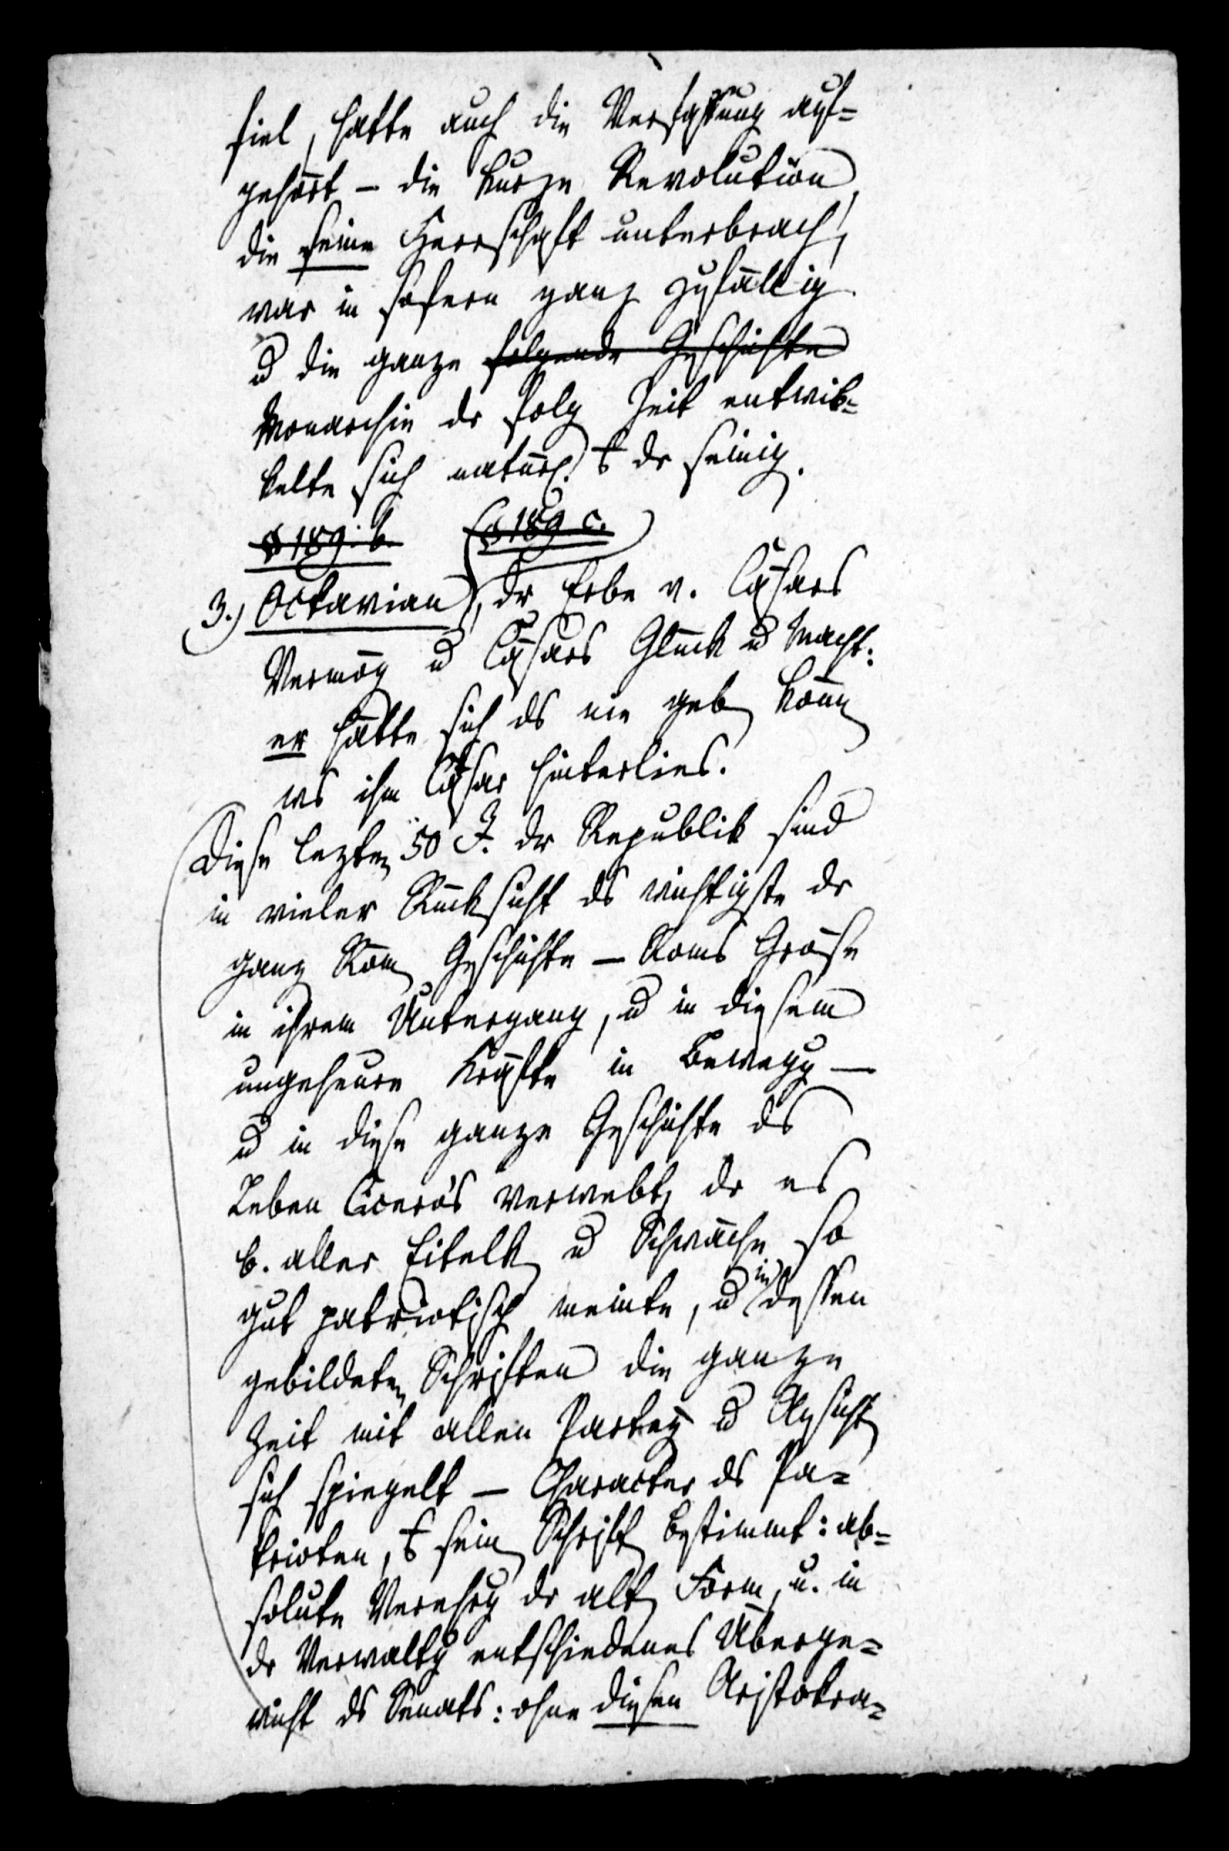 fiel, hatte auch die Verfassung auf-
gehört – die kurze Revolution,
die seine Herrschaft unterbrach,
war in sofern ganz zufällig
u die ganze folgende Geschichte
Monarchie dr folg Zeit entwik-
kelte sich natürl. dr seinig.
§ 189. b. (§ 189 c.
3.) Octavian), dr Erbe v. Cäsars
Vermög u Cäsars Glück u Macht:
er hätte sich ds nie geb könn
ws ihm Cäsar hinterlies.
Diese lezten 50 J. dr Republik sind
in vieler Rücksicht ds wichtigste dr
ganz Röm Geschichte – Roms Größe
in ihrem Untergang, u in diesem
ungeheure Kräfte in Bewegg –
u in diese ganze Geschichte ds
Leben Cicero's verwebt, dr es
b. aller Eitelk u Schwäche so
gut patriotisch meinte, u in dessen
gebildeten Schriften die ganze
Zeit mit allen Partey u Absicht
sich spiegelt – Character ds Pa-
trioten, sein Schrift bestimmt: ab-
solute Verehrg dr alt Form, u. in
dr Verwaltg entschiedenes Überge-
wicht ds Senats: ohne diesen Aristokra-